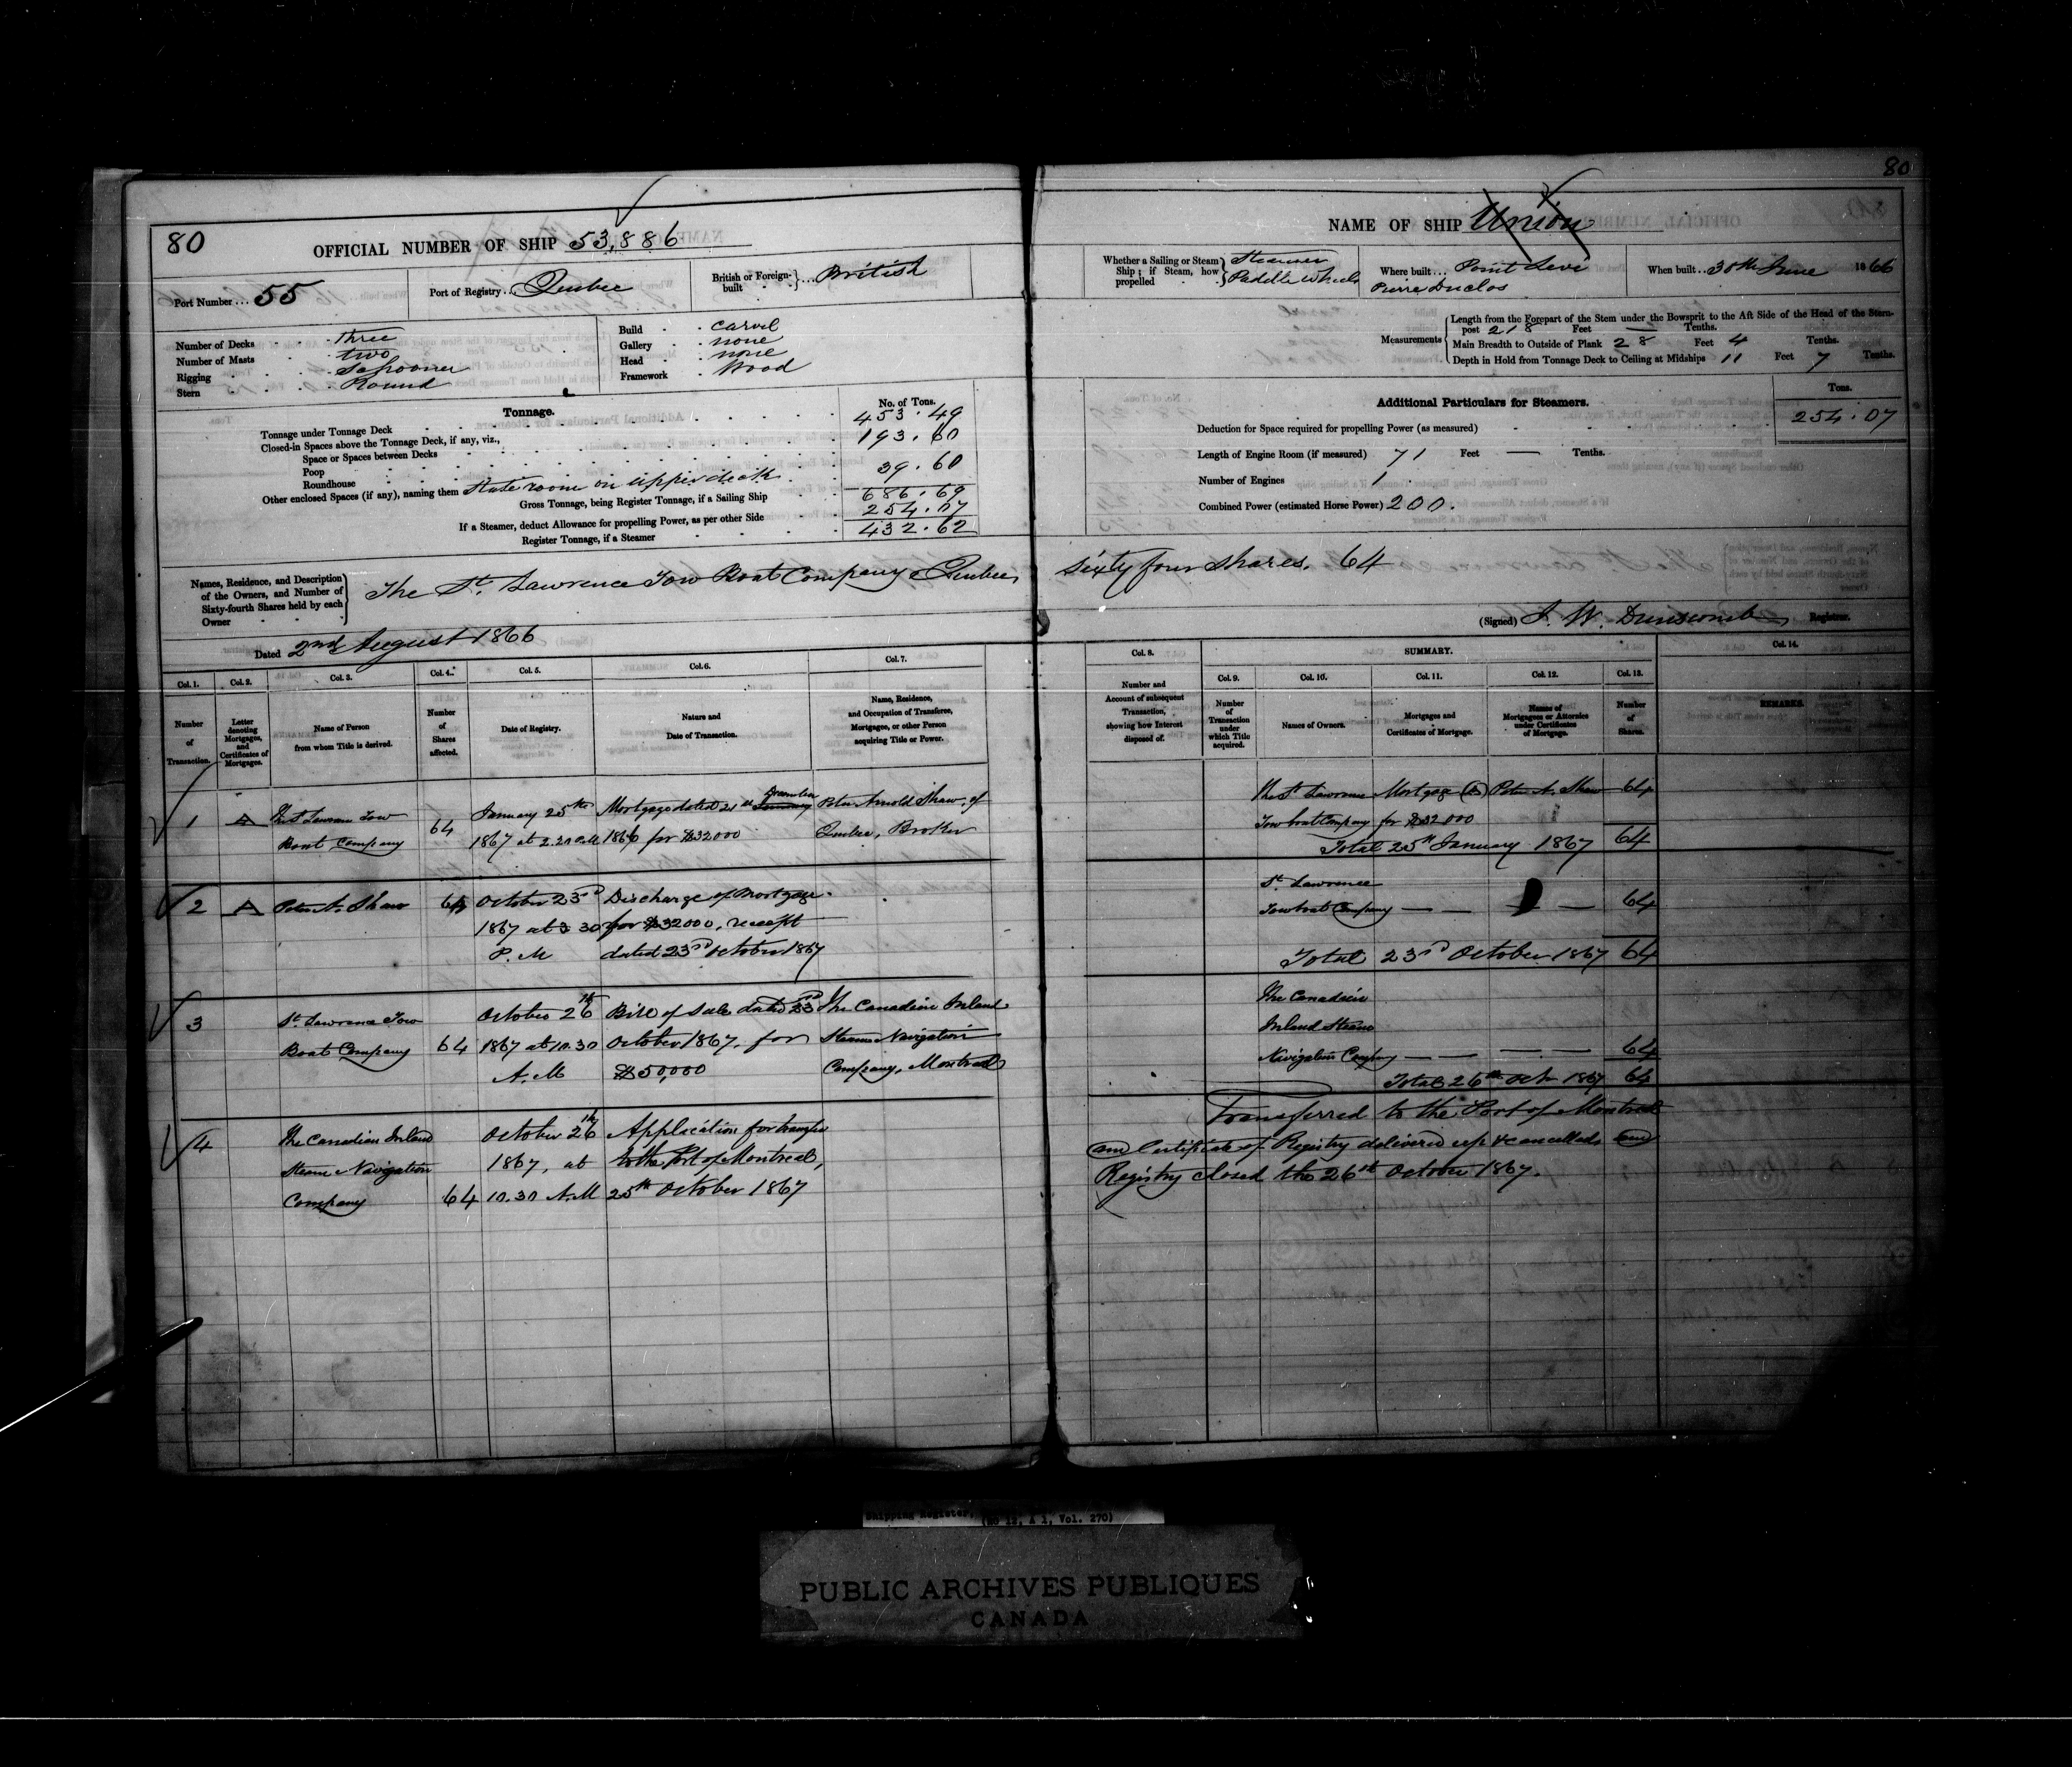 80
80
OFFICIAL NUMBER OF SHIP 53,886
Port Number ... 55
Port of Registry ... Quebec
British or Foreign-built ... British
Number of Decks three
Number of Masts two
Rigging Schooner
Stern Round
Build carvel
Gallery none
Head none
Framework Wood
Tonnage.
No. of Tons.
Tonnage under Tonnage Deck 453.49
Closed-in Spaces above the Tonnage Deck, if any, viz.,
Space or Spaces between Decks 193.60
Poop
Roundhouse 39.60
Other enclosed Spaces (if any), naming them State room on upper deck
Gross Tonnage, being Register Tonnage, if a Sailing Ship 686.69
If a Steamer, deduct Allowance for propelling Power, as per other Side 254.07
Register Tonnage, if a Steamer 432.62
NAME OF SHIP Union
Whether a Sailing or Steam Ship; if Steam, how propelled Steamer Paddle Wheels
Where built ... Point Levi
Pierre Duclos
When built ... 30th June 1866
Measurements
Length from the Forepart of the Stem under the Bowsprit to the Aft Side of the Head of the Stern-
post 218 Feet — Tenths.
Main Breadth to Outside of Plank 28 Feet 4 Tenths.
Depth in Hold from Tonnage Deck to Ceiling at Midships 11 Feet 7 Tenths.
Additional Particulars for Steamers.
Tons.
Deduction for Space required for propelling Power (as measured) 254.07
Length of Engine Room (if measured) 71 Feet — Tenths.
Number of Engines 1
Combined Power (estimated Horse Power) 200.
Names, Residence, and Description of the Owners, and Number of Sixty-fourth Shares held by each Owner
The St. Lawrence Tow Boat Company Quebec, Sixty four shares. 64
Dated 2nd August 1866
(Signed) J. W. Dunscomb Registrar.
Col. 1. Col. 2. Col. 3. Col. 4. Col. 5. Col. 6. Col. 7.
Number of Transaction.
Letter denoting Mortgages, and Certificates of Mortgages.
Name of Person from whom Title is derived.
Number of Shares affected.
Date of Registry.
Nature and Date of Transaction.
Name, Residence, and Occupation of Transferee, Mortgagee, or other Person acquiring Title or Power.
Col. 8. SUMMARY. Col. 14.
Col. 9. Col. 10. Col. 11. Col. 12. Col. 13.
Number and Account of subsequent Transaction, showing how Interest disposed of.
Number of Transaction under which Title acquired.
Names of Owners.
Mortgages and Certificates of Mortgage.
Names of Mortgagees or Attornies under Certificates of Mortgage.
Number of Shares.
REMARKS.
1 A The St Lawrence Tow January 25th Mortgage dated 21st December January Peter Arnold Shaw, of
Boat Company 64 1867 at 2.20 P.M 1866 for $32000 Quebec, Broker
The St Lawrence Mortgage (A) Peter A. Shaw 64
Tow boat Company for $32000
Total 25th January 1867 64
2 A Peter A. Shaw 64 October 23rd Discharge of Mortgage
1867 at 3 30 for $32000, receipt
P.M dated 23rd October 1867
St. Lawrence
Tow boat Company — — — 64
Total 23rd October 1867 64
3 St. Lawrence Tow October 26th Bill of Sale dated 23rd The Canadian Inland
Boat Company 64 1867 at 10.30 October 1867, for Steam Navigation
A.M $50,000 Company, Montreal
The Canadian
Inland Steam
Navigation Company — — — — 64
Total 26th Oct 1867 64
4 The Canadian Inland October 26th Application for transfer
Steam Navigation 1867, at to the Port of Montreal,
Company 64 10.30 A.M 25th October 1867
Transferred to the Port of Montreal
and Certificate of Registry delivered up & cancelled and
Registry closed the 26th October 1867.
Shipping Register,
(RG 12, A 1, Vol. 270)
PUBLIC ARCHIVES PUBLIQUES
CANADA